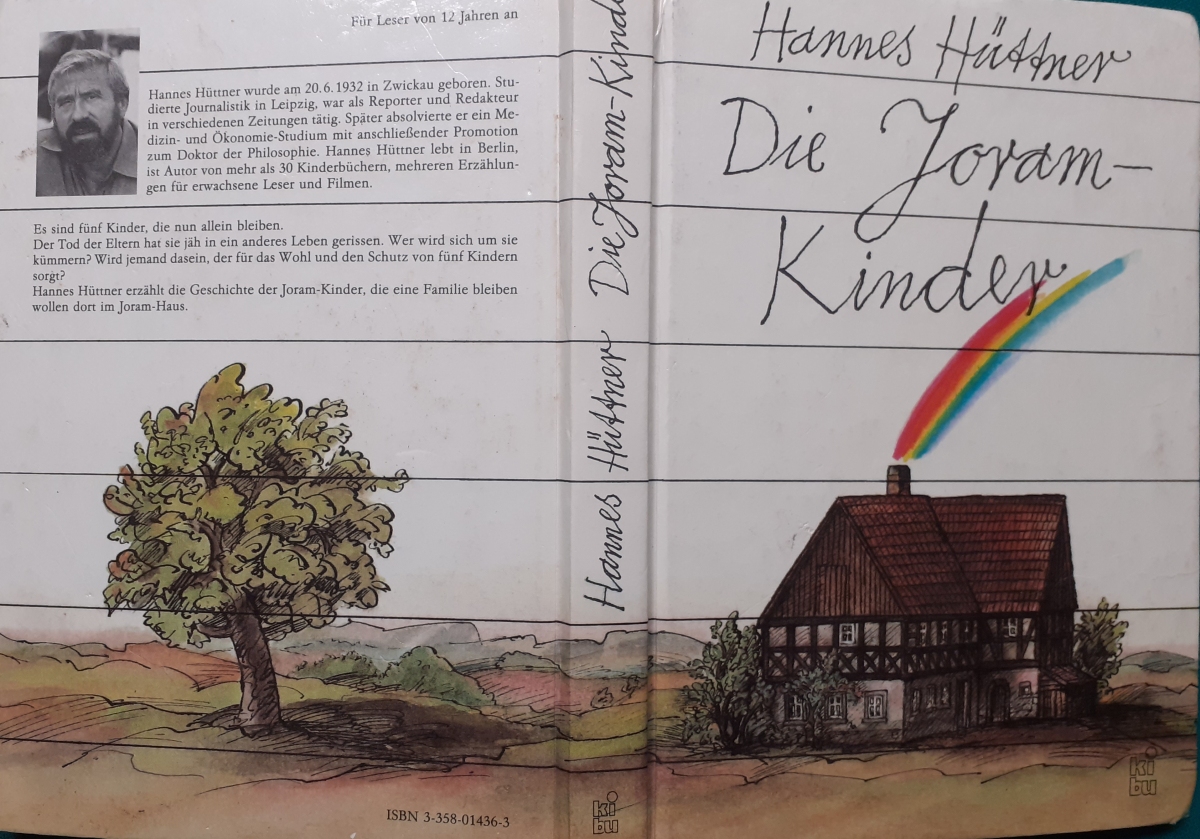 Für Leser von 12 Jahren an
Hannes Hüttner wurde am 20.6.1932 in Zwickau geboren. Stu-
dierte Journalistik in Leipzig, war als Reporter und Redakteur
in verschiedenen Zeitungen tätig. Später absolvierte er ein Me-
dizin- und Ökonomie-Studium mit anschließender Promotion
zum Doktor der Philosophie. Hannes Hüttner lebt in Berlin,
ist Autor von mehr als 30 Kinderbüchern, mehreren Erzählun-
gen für erwachsene Leser und Filmen.
Es sind fünf Kinder, die nun allein bleiben.
Der Tod der Eltern hat sie jäh in ein anderes Leben gerissen. Wer wird sich um sie
kümmern? Wird jemand dasein, der für das Wohl und den Schutz von fünf Kindern
sorgt?
Hannes Hüttner erzählt die Geschichte der Joram-Kinder, die eine Familie bleiben
wollen dort im Joram-Haus.
ISBN 3-358-01436-3
Hannes Hüttner Die Joram-Kinde
ki
bu
Hannes Hüttner
Die Joram-
Kinder
ki
bu